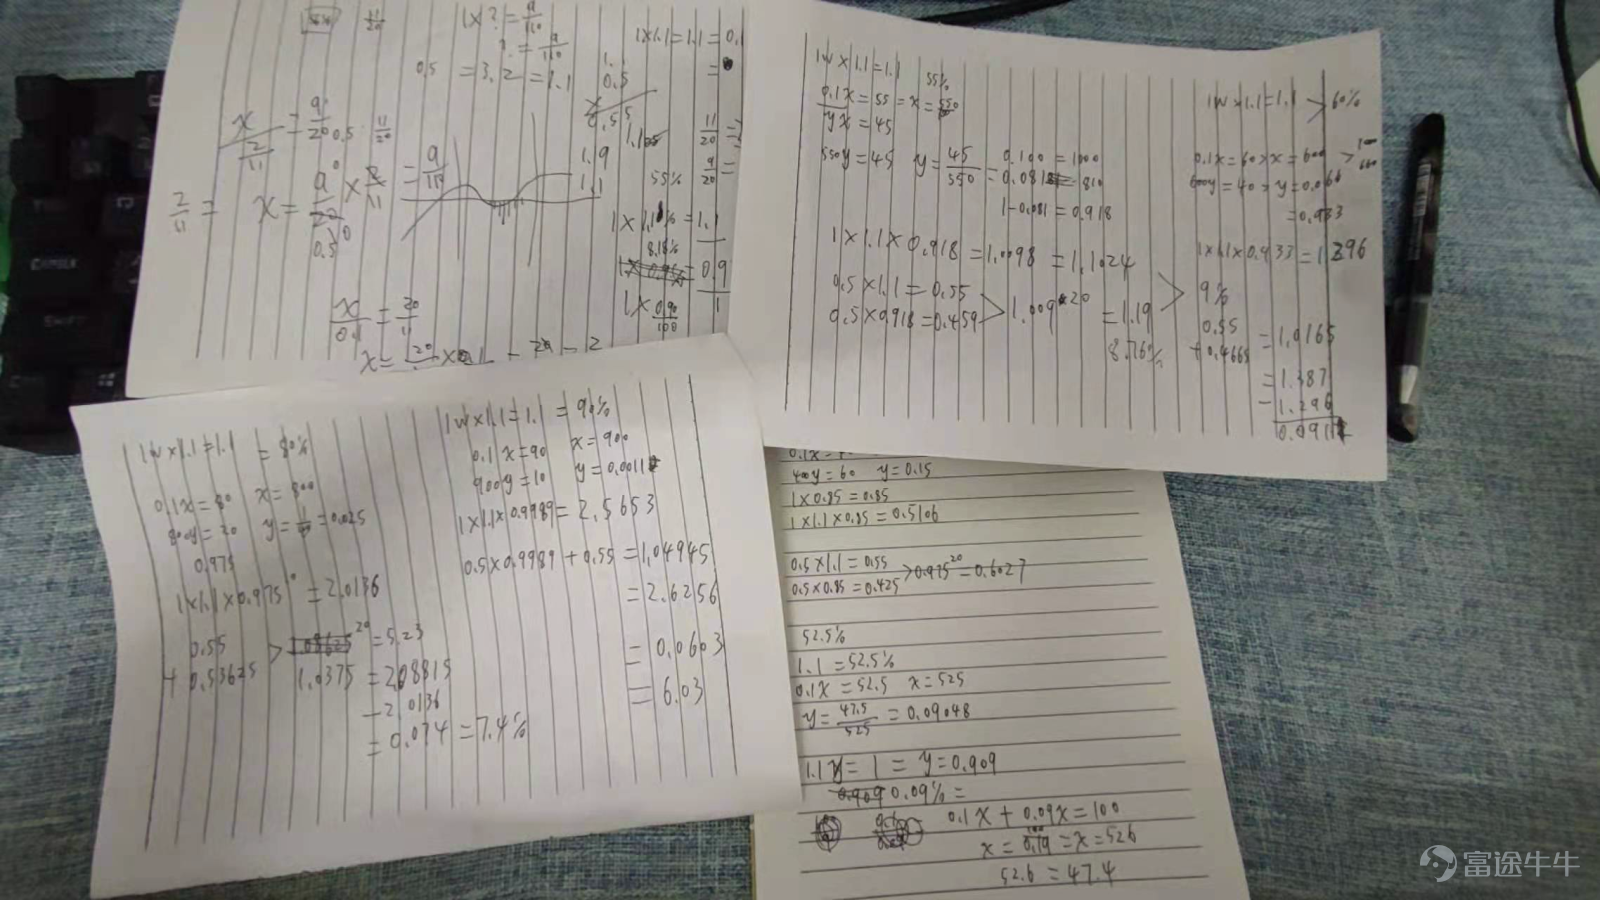 11/20
1x?=9/110
?=9/110
1x1.1=1.1=0.1
0.5 =3.2=1.1
1.1
0.5
x/(2/11)=9/20
0.5 11/20
0.55
2/11=
x=9/20x2/11=9/110
1.9
1.1
55%
11/20=
9/20=
1x1.1%=1.1
8.18%
=0.9
1x0.90/100
1
x/0.1=20/11
1wx1.1=1.1 55%
0.1x=55=x=550
yx=45
550y=45 y=45/550=0.081=810
0.100=1000
1-0.081=0.918
1x1.1x0.918=1.0098=1.1024
0.5x1.1=0.55
0.5x0.918=0.459>1.009^20=1.19
8.76%
1wx1.1=1.1>60%
0.1x=60>x=600
600y=40>y=0.066
=0.933
1x1.1x0.933=1.296
9%
0.55
+0.4665=1.0165
=1.387
-1.296
0.091
1wx1.1=1.1=80%
0.1x=80 x=800
800y=20 y=1/40=0.025
0.975
1x1.1x0.975=2.0136
0.55
+0.53625>
20=5.23
1.0375=2.08815
-2.0136
=0.074=7.4%
1wx1.1=1.1=90%
0.1x=90 x=900
900y=10 y=0.0011
1x1.1x0.9989=2.5653
0.5x0.9989+0.55=1.04945
=2.6256
=0.0603
=6.03
400y=60 y=0.15
1x0.85=0.85
1x1.1x0.85=0.5106
0.5x1.1=0.55
0.5x0.85=0.425>0.975^20=0.6027
52.5%
1.1=52.5%
0.1x=52.5 x=525
y=47.5/525=0.09048
1.1y=1=y=0.909
0.909 0.09%=
0.1x+0.09x=100
x=100/0.19=x=526
52.6=47.4
富途牛牛